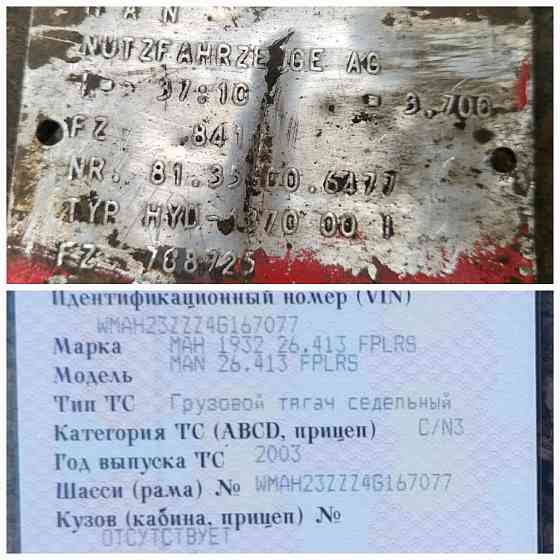 MAN
NUTZFAHRZEUGE AG
I= 37:10 = 3.700
FZ 841
NR. 81.35 00.6477
TYP HYD-1370 00 1
FZ 788725
Идентификационный номер (VIN)
WMAH23ZZZ4G167077
Марка МАН 1932 26.413 FPLRS
Модель MAN 26.413 FPLRS
Тип ТС Грузовой тягач седельный
Категория ТС (ABCD, прицеп) C/N3
Год выпуска ТС 2003
Шасси (рама) № WMAH23ZZZ4G167077
Кузов (кабина, прицеп) №
ОТСУТСТВУЕТ